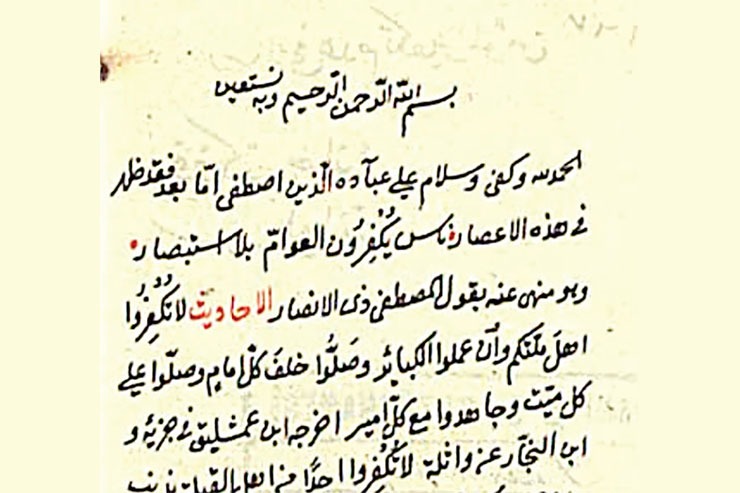 بسم الله الرحمن الرحيم وبه نستعين
الحمد لله وكفى وسلام على عباده الذين اصطفى امّا بعد فقد ظهر
فى هذه الاعصار ناس يُكْفِرُون العوامّ بلا استبصار
وهو منهى عنه بقول المصطفى ذى الانصار الاحاديث لا تُكْفِرُوا
اهلَ ملّتكم وان عملوا الكبائر وصَلُّوا خلفَ كلّ امامٍ وصلّوا على
كل ميّت وجاهدوا مع كلّ امير اخرجه ابن عمشليق فى جزئه و
ابن النجّار عن واثلة لا تُكْفِرُوا احدًا من اهل القبلة بذنب